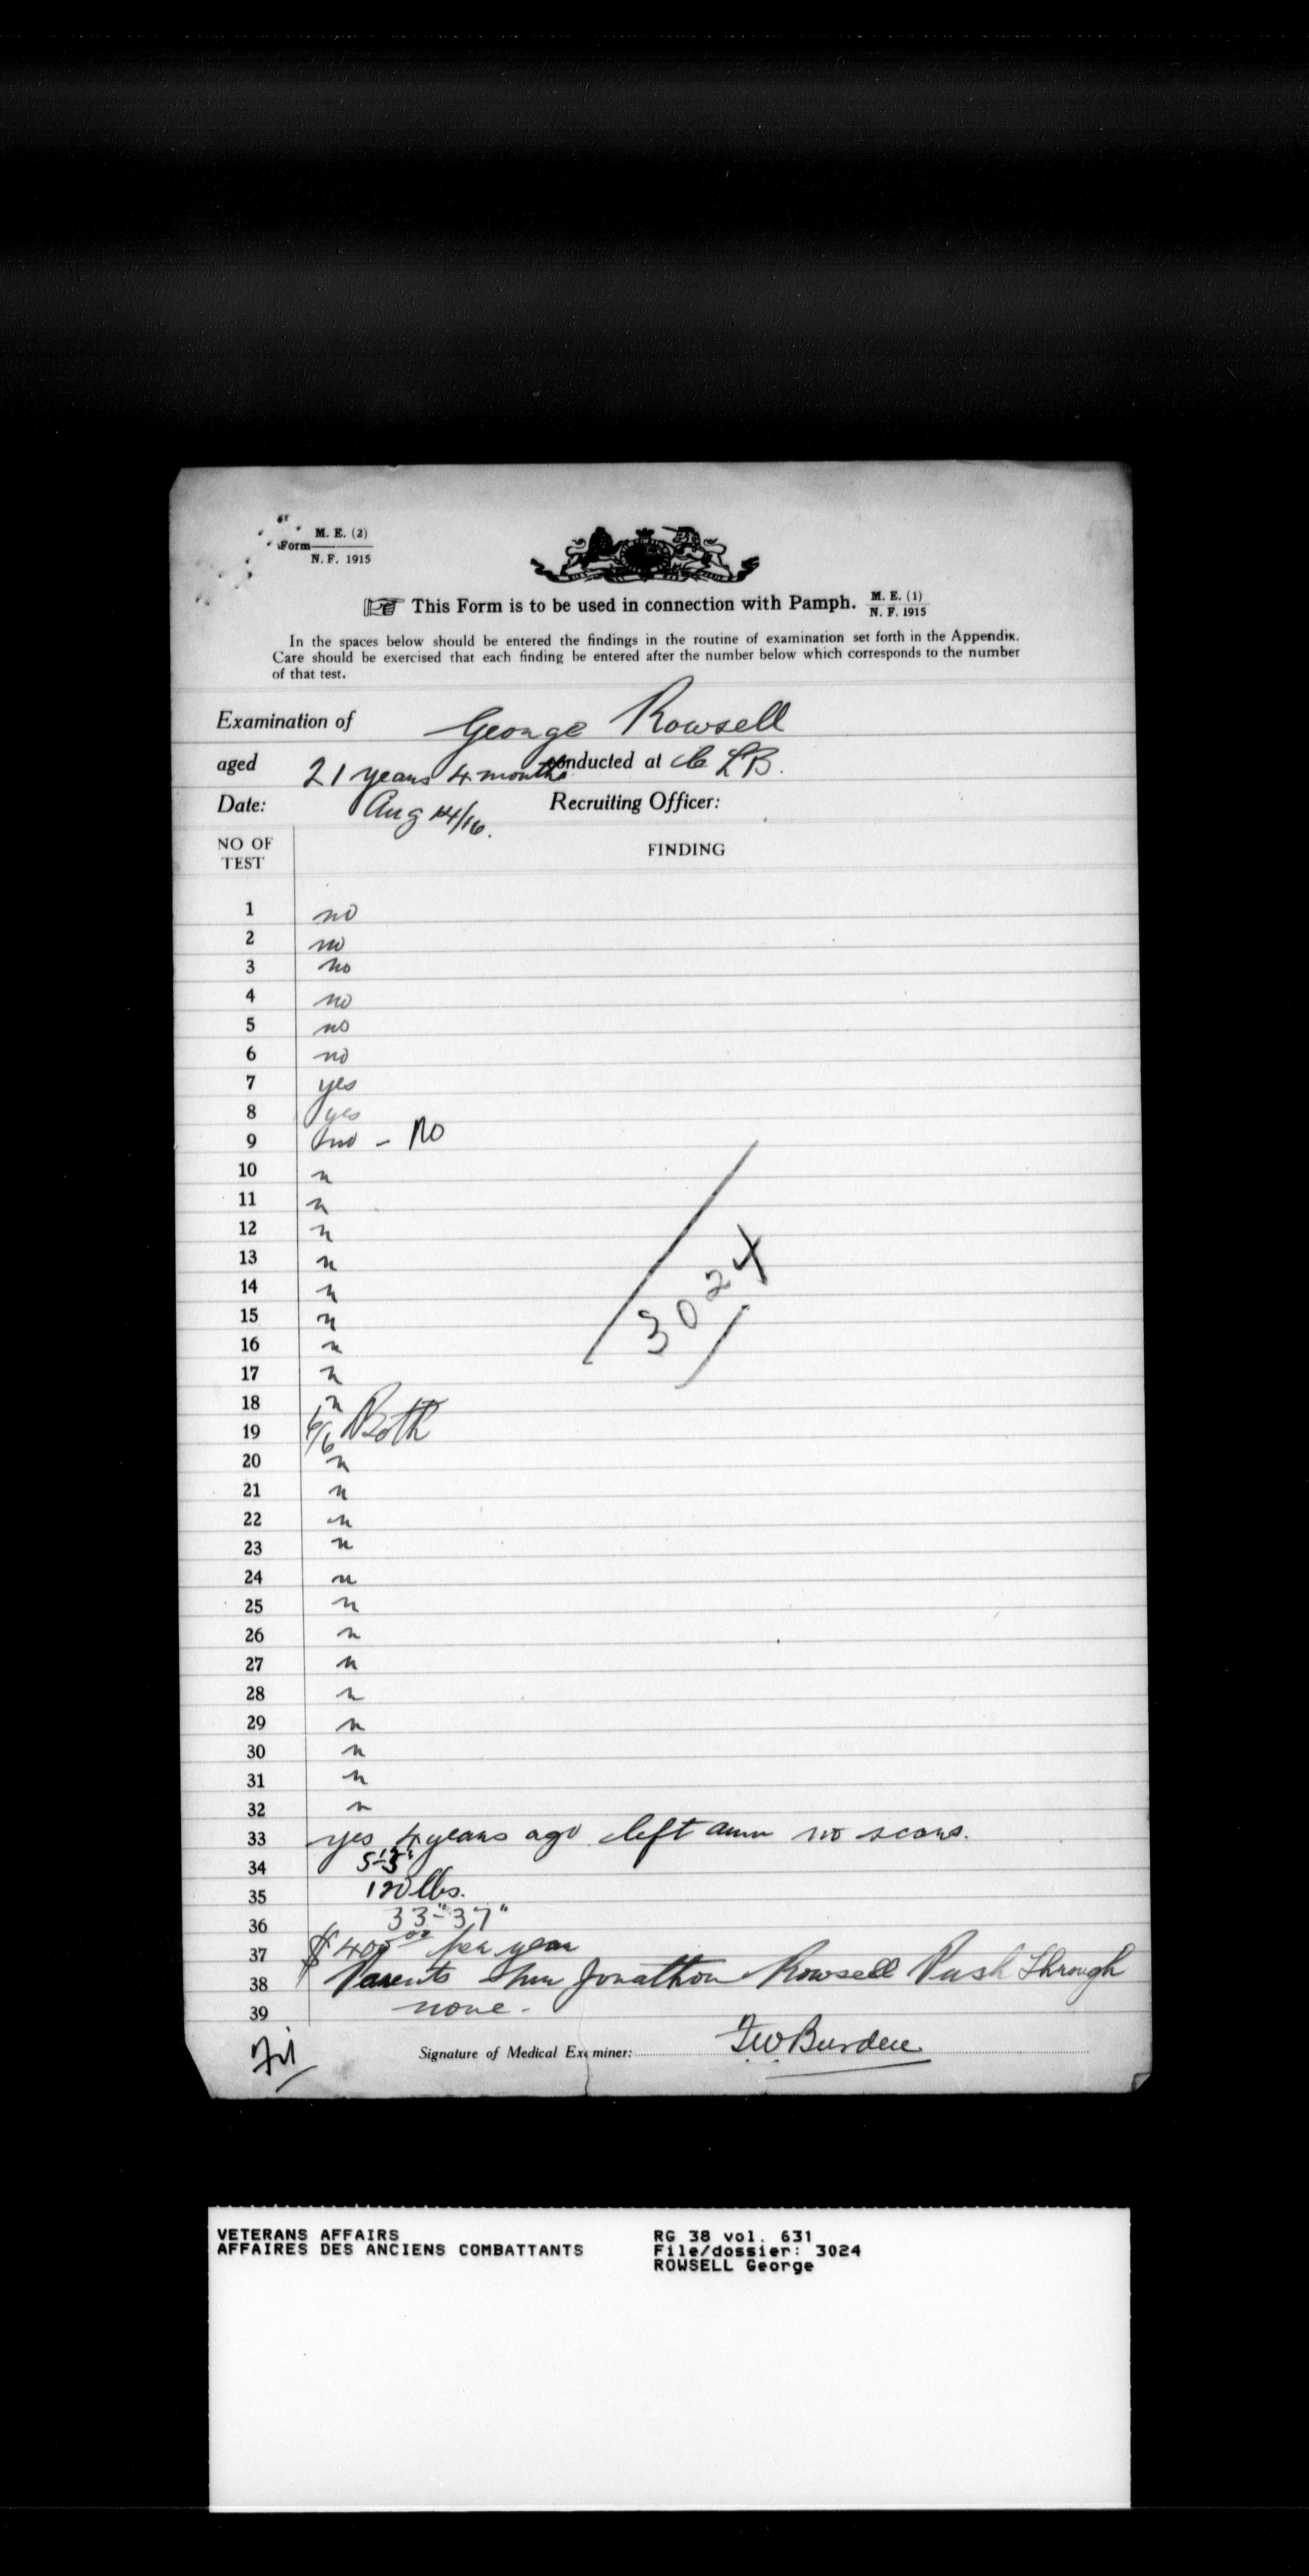 M. E. (2)
Form
N. F. 1915
This Form is to be used in connection with Pamph. M. E. (1)
N. F. 1915
In the spaces below should be entered the findings in the routine of examination set forth in the Appendix.
Care should be exercised that each finding be entered after the number below which corresponds to the number
of that test.
Examination of George Rowsell
aged 21 years 4 months conducted at C L B.
Date: Aug 14/16. Recruiting Officer:
NO OF TEST FINDING
1 no
2 no
3 no
4 no
5 no
6 no
7 yes
8 yes
9 no - No
10 n
11 n
12 n
13 n
14 n
15 n
16 n
17 n
18 n
19 6/6 Both
20 n
21 n
22 n
23 n
24 n
25 n
26 n
27 n
28 n
29 n
30 n
31 n
32 n
3024
33 yes 4 years ago left arm no scars.
34 5'5"
35 120 lbs.
36 33"-37"
37 $400.00 per year
38 Parents Jonathon Rowsell Push Through
39 none.
Fit
Signature of Medical Examiner: FW Burden
VETERANS AFFAIRS
AFFAIRES DES ANCIENS COMBATTANTS
RG 38 vol. 631
File/dossier: 3024
ROWSELL George